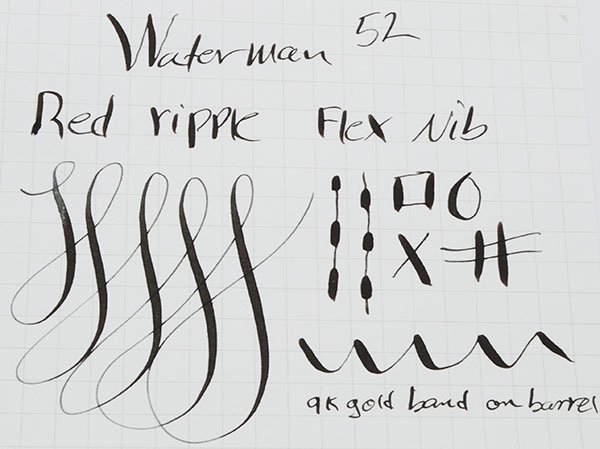 Waterman 52
Red ripple Flex Nib
9k gold band on barrel